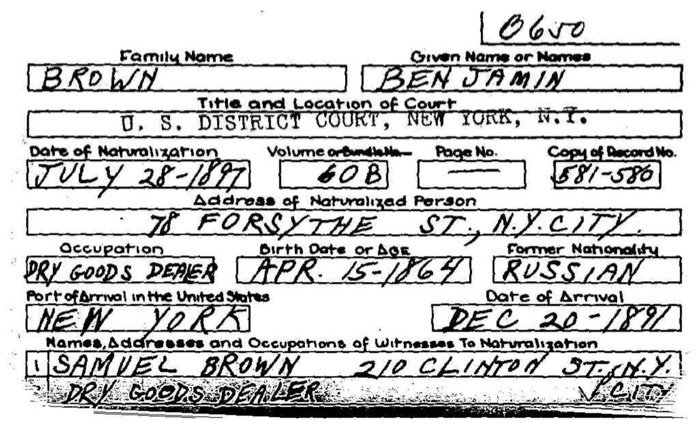 B650
Family Name Given Name or Names
BROWN BENJAMIN
Title and Location of Court
U. S. DISTRICT COURT, NEW YORK, N.Y.
Date of Naturalization Volume or Bundle No. Page No. Copy of Record No.
JULY 28-1897 60B — 581-586
Address of Naturalized Person
78 FORSYTHE ST., N.Y. CITY.
Occupation Birth Date or Age Former Nationality
DRY GOODS DEALER APR. 15-1864 RUSSIAN
Port of Arrival in the United States Date of Arrival
NEW YORK DEC 20-1891
Names, Addresses and Occupations of Witnesses To Naturalization
1 SAMUEL BROWN 210 CLINTON ST., N.Y.
DRY GOODS DEALER CITY